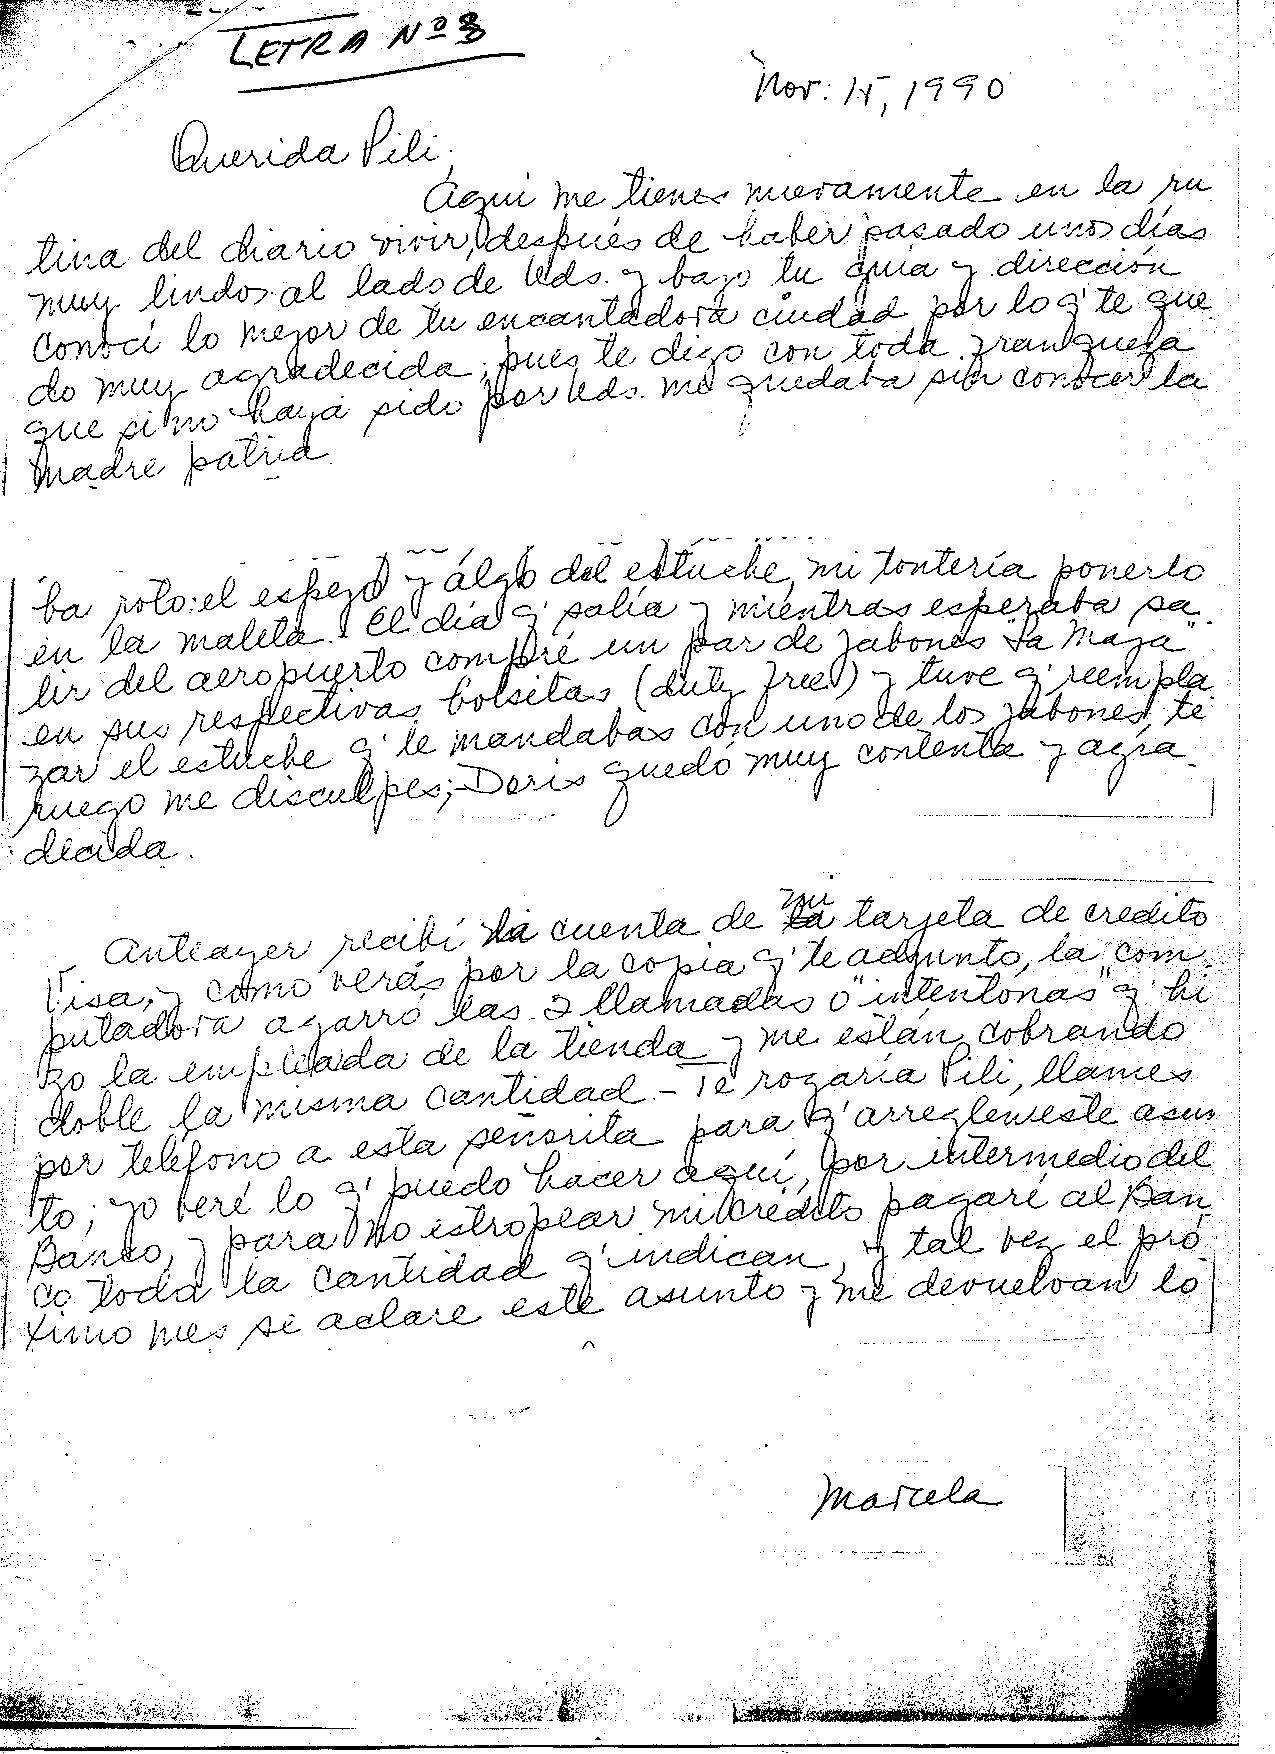 LETRA Nº 8
Nov. 15, 1990
Querida Pili,
Aquí me tienes nuevamente en la ru
tina del diario vivir, después de haber pasado unos días
muy lindos al lado de Uds. y bajo tu guía y dirección
conocí lo mejor de tu encantadora ciudad por lo q' te que
do muy agradecida, pues te digo con toda franqueza
que si no haya sido por Uds. me quedaba sin conocer la
Madre patria
ba roto: el espejo y algo del estuche, mi tontería ponerlo
en la maleta. El día q' salía y mientras esperaba sa
lir del aeropuerto compré un par de jabones "La Maja"
en sus respectivas bolsitas (duty free) y tuve q' reempla
zar el estuche q' le mandabas con uno de los jabones, te
ruego me disculpes; Doris quedó muy contenta y agra
decida.
Anteayer recibí la cuenta de mi tarjeta de credito
Visa, y como verás por la copia q' te adjunto, la com
putadora agarró las 2 llamadas o "intentonas" q' hi
zo la empleada de la tienda y me están cobrando
doble la misma cantidad - Te rogaría Pili, llames
por teléfono a esta señorita para q' arreglen este asun
to; yo veré lo q' puedo hacer aquí, por intermedio del
Banco, y para no estropear mi crédito pagaré al Ban
co toda la cantidad q' indican, y tal vez el pró
ximo mes se aclare este asunto y me devuelvan lo
Marcela